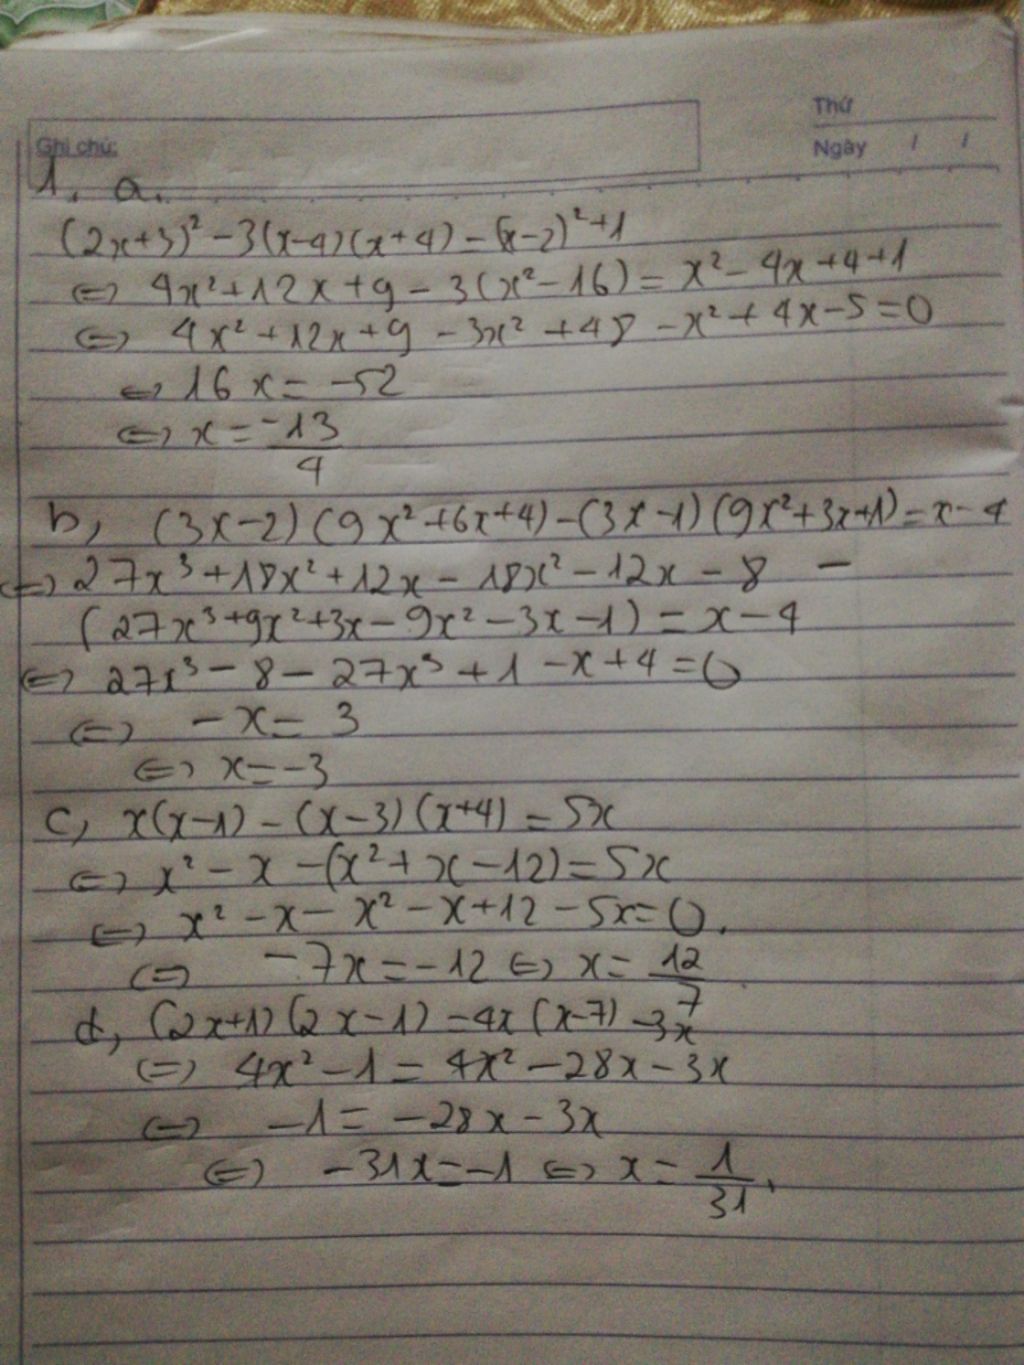 Thứ
Ghi chú:
Ngày / /
1. a.
(2x+3)² - 3(x-4)(x+4) = (x-2)² + 1
<=> 4x² + 12x + 9 - 3(x² - 16) = x² - 4x + 4 + 1
<=> 4x² + 12x + 9 - 3x² + 48 - x² + 4x - 5 = 0
<=> 16x = -52
<=> x = -13/4
b, (3x-2)(9x²+6x+4) - (3x-1)(9x²+3x+1) = x - 4
<=> 27x³ + 18x² + 12x - 18x² - 12x - 8 -
(27x³ + 9x² + 3x - 9x² - 3x - 1) = x - 4
<=> 27x³ - 8 - 27x³ + 1 - x + 4 = 0
<=> -x = 3
<=> x = -3
c, x(x-1) - (x-3)(x+4) = 5x
<=> x² - x - (x² + x - 12) = 5x
<=> x² - x - x² - x + 12 - 5x = 0.
<=> -7x = -12 <=> x = 12/7
d, (2x+1)(2x-1) = 4x(x-7) - 3x
<=> 4x² - 1 = 4x² - 28x - 3x
<=> -1 = -28x - 3x
<=> -31x = -1 <=> x = 1/31.